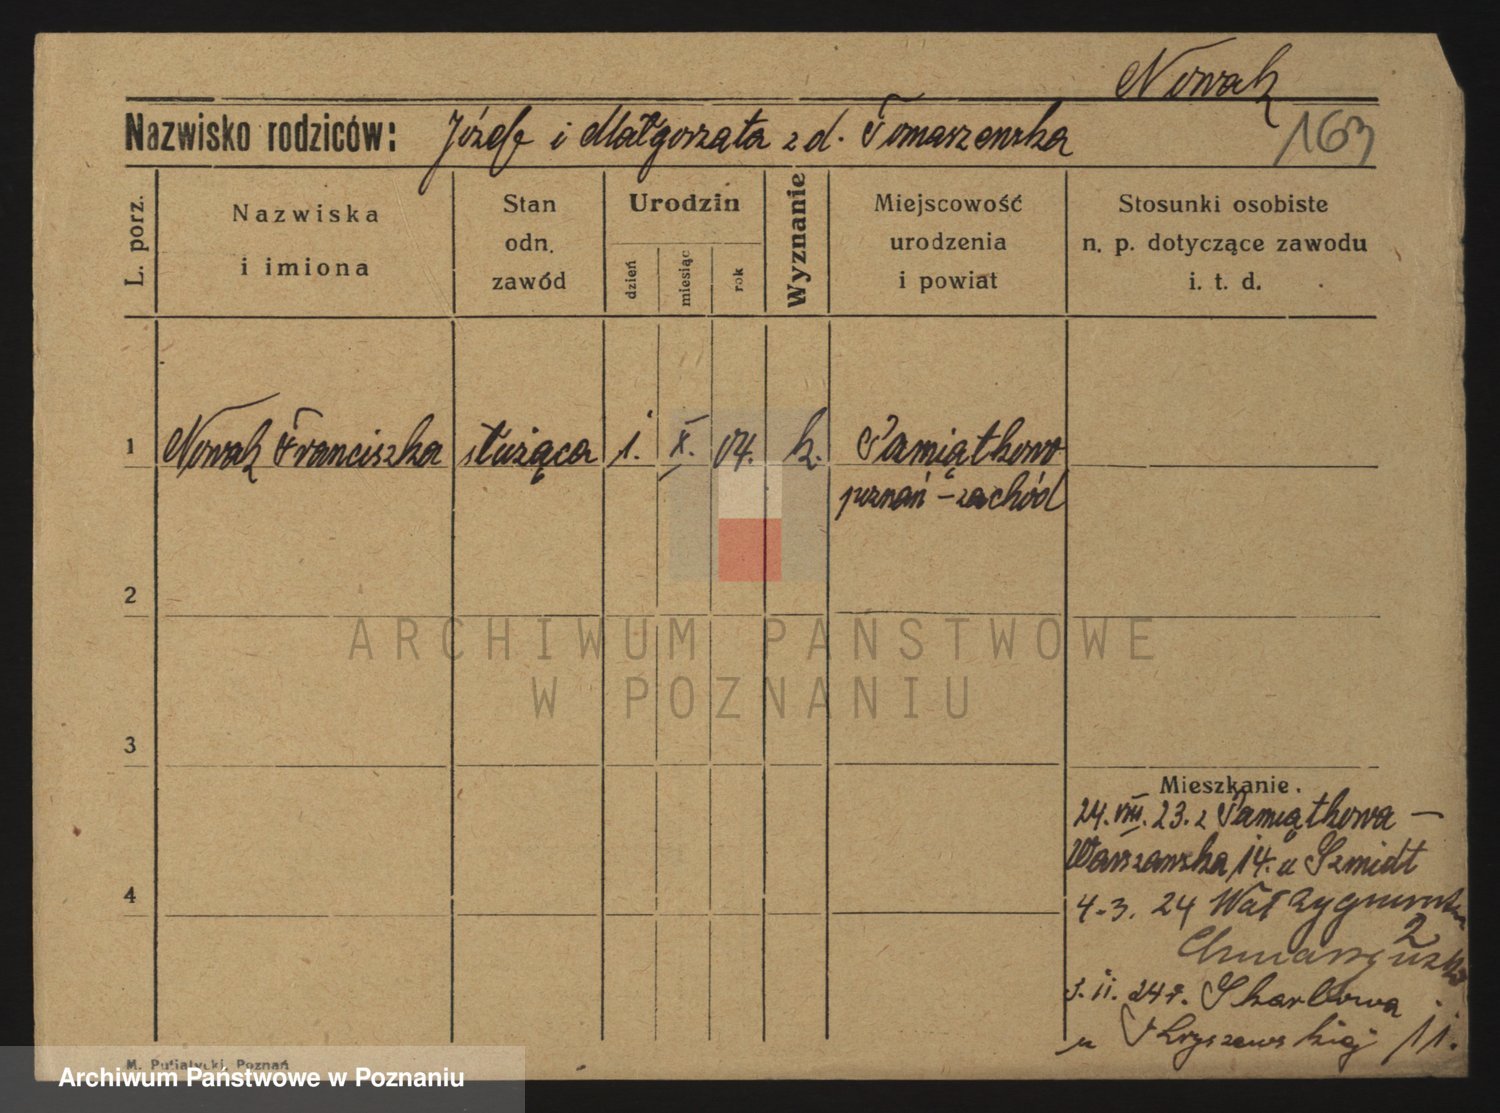 Nowak
Nazwisko rodziców: Józef i Małgorzata z d. Tomaszewska
163
L. porz.
Nazwiska
i imiona
Stan
odn.
zawód
Urodzin
dzień
miesiąc
rok
Wyznanie
Miejscowość
urodzenia
i powiat
Stosunki osobiste
n. p. dotyczące zawodu
i. t. d.
1 Nowak Franciszka służąca 1. X. 04. k. Pamiątkowo
poznań - zachód
2
3
4
Mieszkanie.
24. VIII. 23. z Pamiątkowa -
Warszawska 14. u Szmidt
4-3. 24 Wał Zygmunta
2
3. 11. 24 r. Skarbowa
u 11.
M. Putiatycki, Poznań
ARCHIWUM PAŃSTWOWE
W POZNANIU
Archiwum Państwowe w Poznaniu